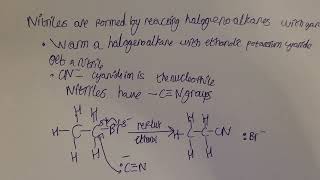 Nitriles are formed by reacting halogenoalkanes with cyan
• Warm a halogenoalkane with ethanolic potassium cyanide
Get a nitrile
• CN⁻ cyanide ion is the nucleophile
Nitriles have -C≡N groups
H H
H-C-C-Br
δ+ δ-
H H
reflux
ethanol
H H
H-C-C-CN
H H
:Br⁻
:C≡N